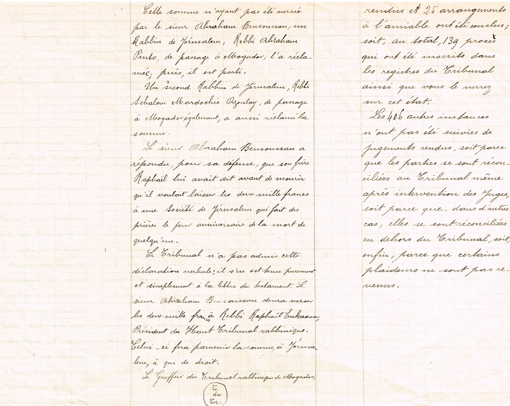 Cette somme n'ayant pas été versée
par le sieur Abraham Bensoussan, un
Rabbin de Jérusalem, Rebbi Abraham
Pinto, de passage à Mogador, l'a récla-
mée, puis, il est parti.
Un second Rabbin de Jérusalem, Rebbi
Mardochée Azoulay, de passage
à Mogador également, a aussi réclamé la
somme.
Le sieur Abraham Bensoussan a
répondu pour sa défense, que son frère
Raphaël lui avait dit avant de mourir
qu'il voulait laisser les deux mille francs
à une Société de Jérusalem qui fait des
prières le jour anniversaire de la mort de
quelqu'un.
Le Tribunal n'a pas admis cette
déclaration verbale; il s'en est tenu purement
et simplement à la lettre du testament. Le
sieur Abraham Bensoussan devra verser
les deux mille francs à Rebbi Raphaël
Président du Haut Tribunal rabbinique.
Celui-ci fera parvenir la somme à Jérusa-
lem, à qui de droit.
Le Greffier du Tribunal rabbinique de Mogador,
rendus et 25 arrangements
à l'amiable ont été conclus;
soit, au total, 139 procès
qui ont été inscrits dans
les registres du Tribunal
ainsi que vous le verrez
sur cet état.
Les 406 autres instances
n'ont pas été suivies de
jugements rendus, soit parce
que les parties se sont récon-
ciliées au Tribunal même
après intervention des Juges,
soit parce que, dans d'autres
cas, elles se sont réconciliées
en dehors du Tribunal, soit,
enfin, parce que certains
plaideurs ne sont pas re-
venus.